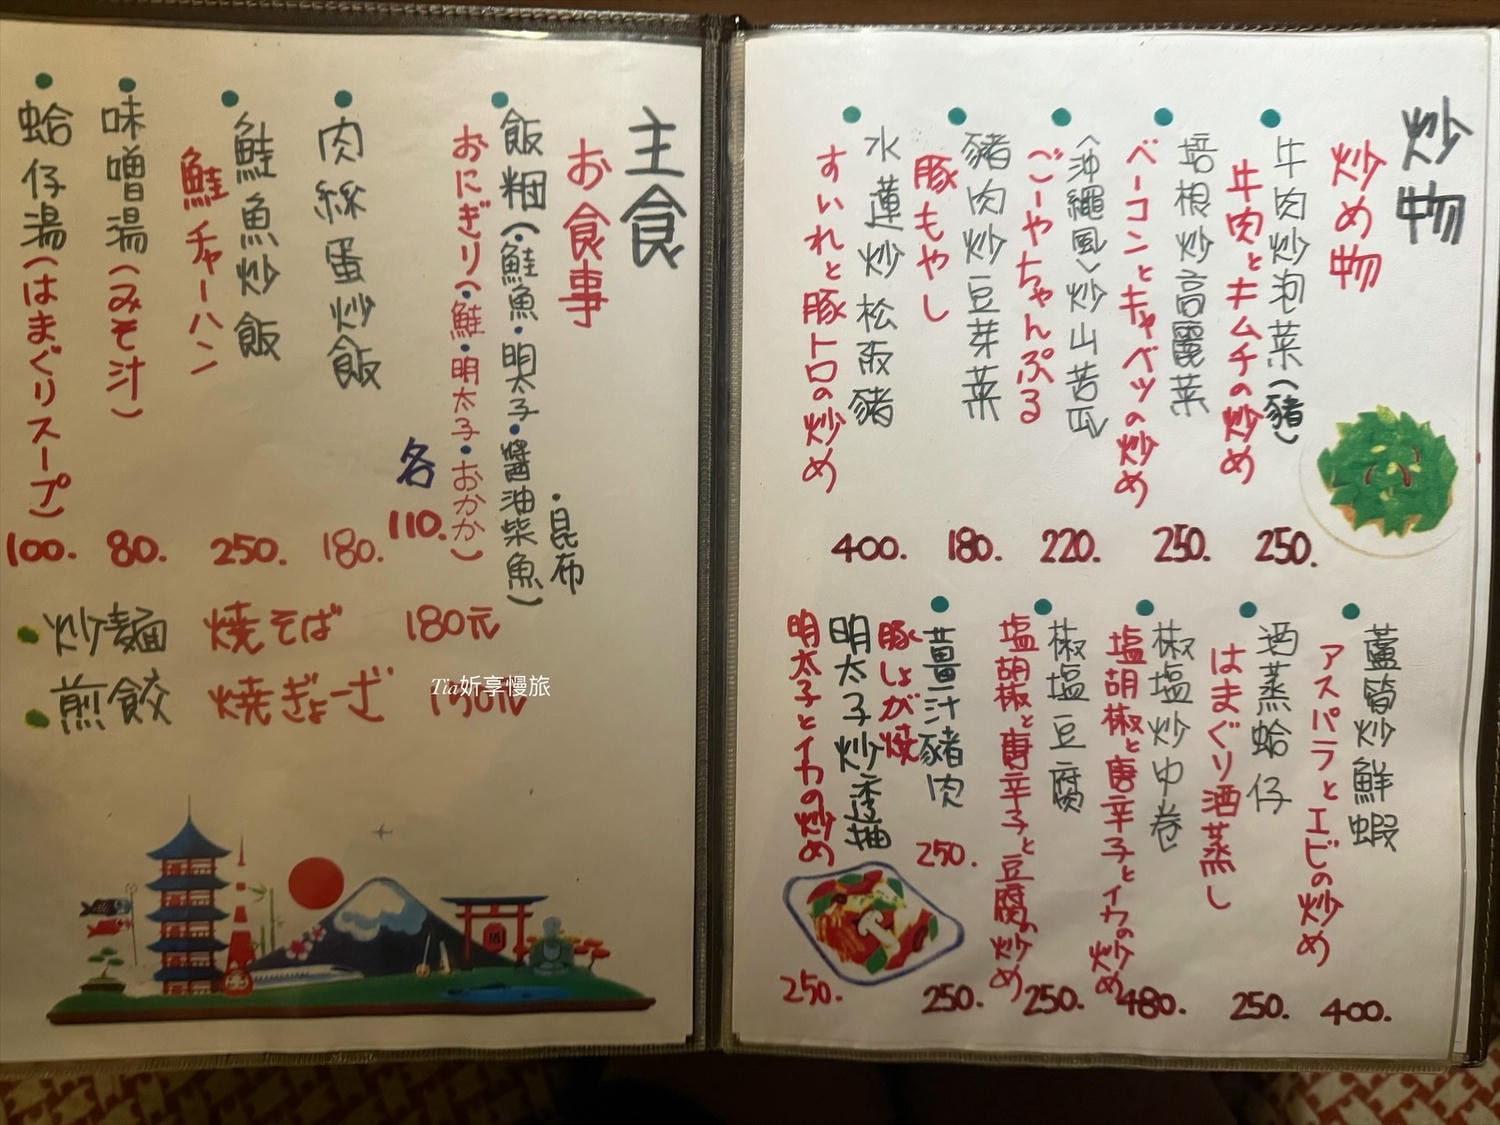 炒物
炒め物
牛肉炒泡菜(豬)
牛肉とキムチの炒め
250.
培根炒高麗菜
ベーコンとキャベツの炒め
250.
(沖繩風)炒山苦瓜
ごーやちゃんぷる
220.
豬肉炒豆芽菜
豚もやし
180.
水蓮炒松阪豬
すいれと豚トロの炒め
400.
蘆筍炒鮮蝦
アスパラとエビの炒め
400.
酒蒸蛤仔
はまぐり酒蒸し
250.
椒塩炒中卷
塩胡椒と唐辛子とイカの炒め
480.
椒塩豆腐
塩胡椒と唐辛子と豆腐の炒め
250.
薑汁豬肉
豚しょが焼
250.
250.
明太子炒透抽
明太子とイカの炒め
250.
主食
お食事
飯糰(・鮭魚・明太子・醬油柴魚)
・昆布
おにぎり(・鮭・明太子・おかか)
各
110.
肉絲蛋炒飯
180.
鮭魚炒飯
鮭チャーハン
250.
味噌湯(みそ汁)
80.
蛤仔湯(はまぐりスープ)
100.
炒麵 焼そば 180元
煎餃 焼ぎょーざ
Tia妡享慢旅